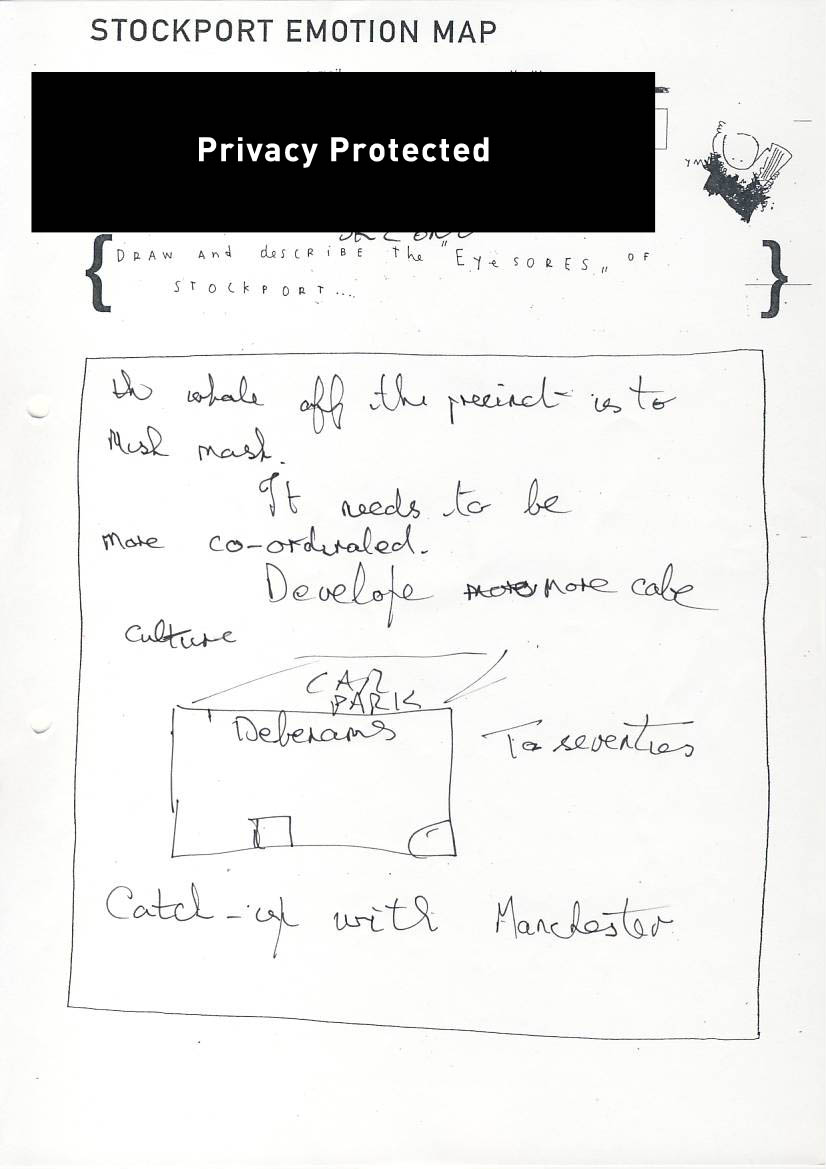 STOCKPORT EMOTION MAP
Privacy Protected
DRAW And desCRiBE the "EyeSORES" OF
STOCKPORT....
the whole off the precinct is to
Mish mash.
It needs to be
more co-ordinated.
Develope more cafe
culture
CAR
PARK
Debenams
To seventies
Catch-up with Manchester